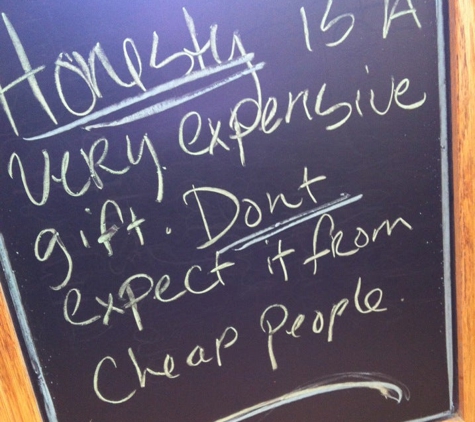 Honesty is A
very expensive
gift. Dont
expect it from
Cheap People.